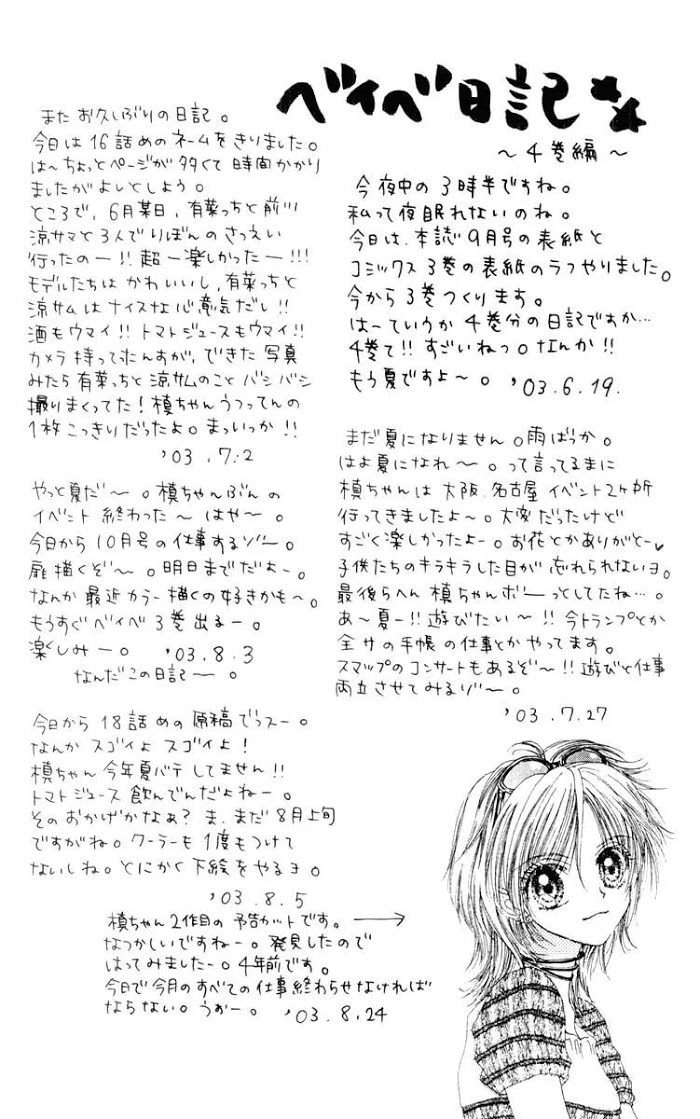 ベイベ日記
〜4巻編〜
今夜中の3時半ですね。
私って夜眠れないのね。
今日は、本誌9月号の表紙と
コミックス3巻の表紙のラフやりました。
今から3巻つくります。
はーていうか4巻分の日記ですか…
4巻て!!すごいねっ。なんか!!
もう夏ですよ〜。'03.6.19.
まだ夏になりません。雨ばっか。
はよ夏になれ〜。って言ってるまに
槙ちゃんは大阪、名古屋イベント2ヶ所
行ってきましたよ〜。大変だったけど
すごく楽しかったよー。お花とかありがと〜♥
子供たちのキラキラした目が忘れられないヨ。
最後らへん槙ちゃんボーっとしてたね…。
あ〜夏ー!!遊びたい〜!!今トランプとか
全サの手帳の仕事とかやってます。
スマップのコンサートもあるぞ〜!!遊びと仕事
両立させてみるゾ〜。
'03.7.27
またお久しぶりの日記。
今日は16話めのネームをきりました。
は〜ちょっとページが多くて時間かかり
ましたがよいとしよう。
ところで、6月某日、有菜っちと前川
涼サマと3人でりぼんのさつえい
行ったのー!!超ー楽しかったー!!!
モデルたちはかわいいし、有菜っちと
涼サムはナイスな心意気だし!!
酒もウマイ!!トマトジュースもウマイ!!
カメラ持って来んすが、できた写真
みたら有菜っちと涼サムのことバシバシ
撮りまくってた!槙ちゃんうつってんの
1枚こっきりだったよ。まっいっか!!
'03.7.2
やっと夏だ〜。槙ちゃんぶんの
イベント終わった〜はや〜。
今日から10月号の仕事するゾ〜。
扉描くぞ〜。明日までだよー。
なんか最近カラー描くの好きかも〜。
もうすぐベイベ3巻出るー。
楽しみー。'03.8.3
なんだこの日記ー。
今日から18話めの原稿でっスー。
なんかスゴイよスゴイよ!
槙ちゃん今年夏バテしてません!!
トマトジュース飲んでんだよねー。
そのおかげかなぁ?ま、まだ8月上旬
ですがね。クーラーも1度もつけて
ないしね。とにかく下絵をやるヨ。
'03.8.5
槙ちゃん2作目の予告カットです。→
なつかしいですねー。発見したので
はってみましたー。4年前です。
今日で今月のすべての仕事終わらせなければ
ならない。うぉー。'03.8.24